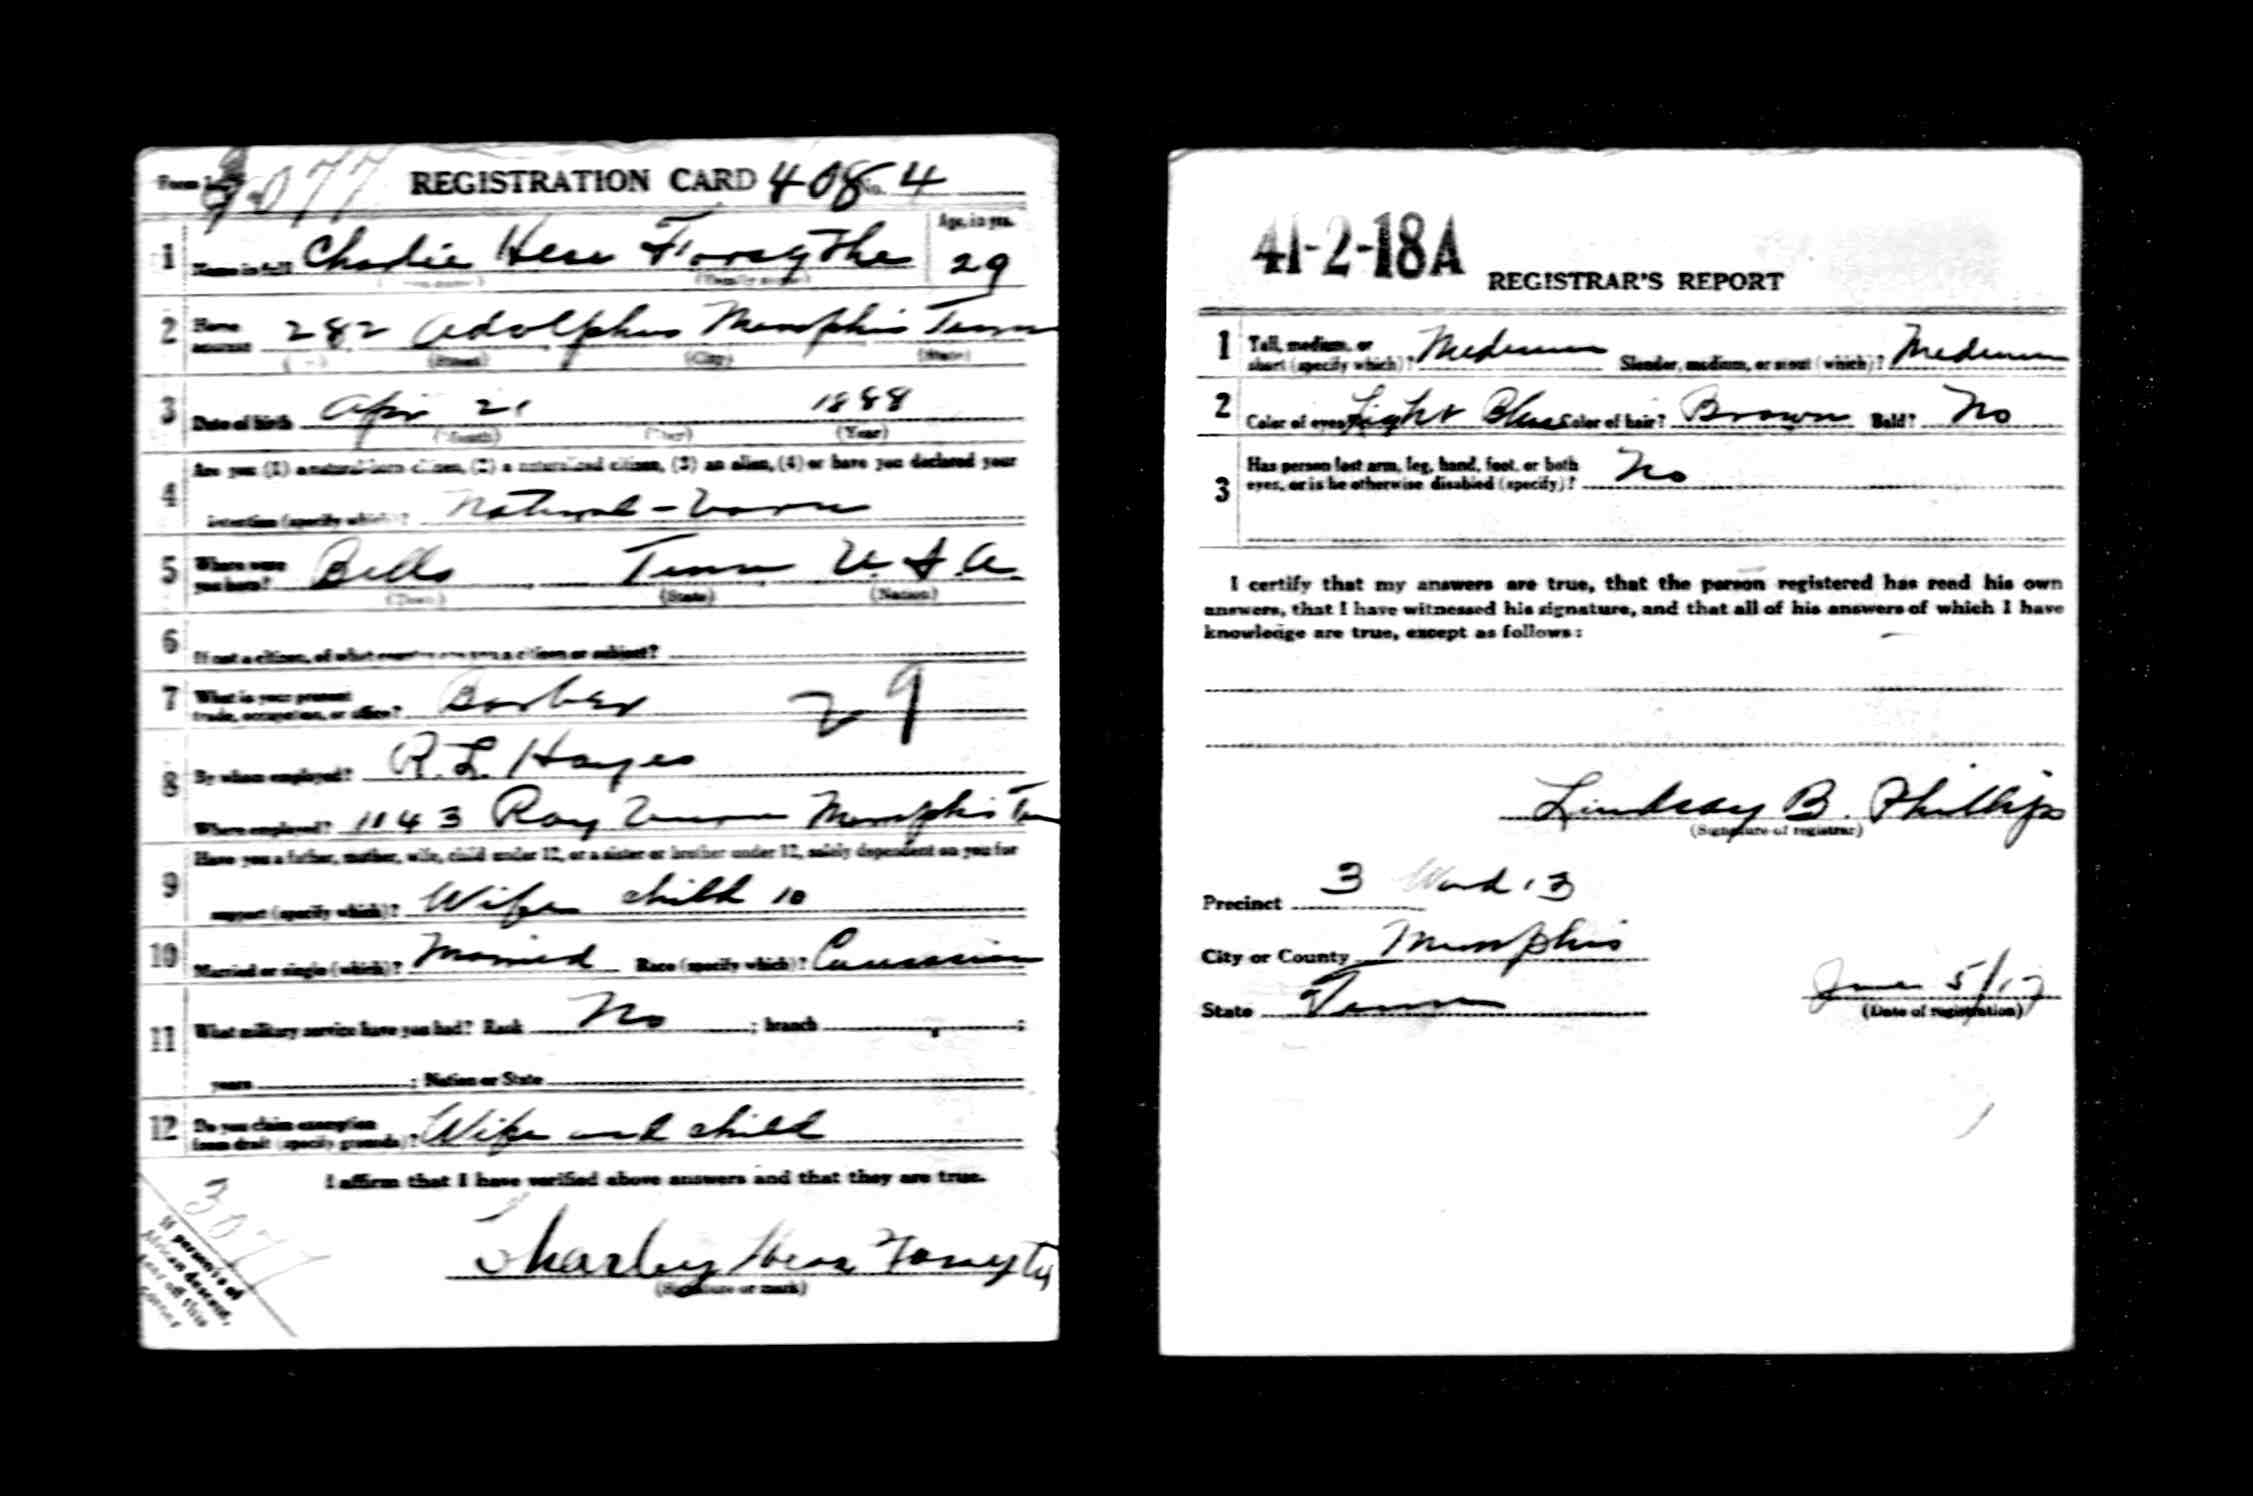 Form 1 3077 REGISTRATION CARD 408 No. 4
1 Name in full Charlie Hess Forsythe Age, in yrs. 29
(Given name) (Family name)
2 Home address 282 Adolphus Memphis Tenn
(No.) (Street) (City) (State)
3 Date of birth Apr 21 1888
(Month) (Day) (Year)
4 Are you (1) a natural-born citizen, (2) a naturalized citizen, (3) an alien, (4) or have you declared your
intention (specify which)? Natural-born
5 Where were you born? Bells Tenn U.S.A.
(Town) (State) (Nation)
6 If not a citizen, of what country are you a citizen or subject?
7 What is your present trade, occupation, or office? Barber 29
8 By whom employed? R. L. Hayes
Where employed? 1143 Memphis Tenn
9 Have you a father, mother, wife, child under 12, or a sister or brother under 12, solely dependent on you for
support (specify which)? Wife child 10
10 Married or single (which)? Married Race (specify which)? Caucasian
11 What military service have you had? Rank No ; branch ;
years ; Nation or State
12 Do you claim exemption from draft (specify grounds)? Wife and child
I affirm that I have verified above answers and that they are true.
3077
If person is of
African descent,
tear off this
corner
Charley Hess Forsyth
(Signature or mark)
41-2-18A REGISTRAR'S REPORT
1 Tall, medium, or short (specify which)? Medium Slender, medium, or stout (which)? Medium
2 Color of eyes? Light Blue Color of hair? Brown Bald? No
3 Has person lost arm, leg, hand, foot, or both
eyes, or is he otherwise disabled (specify)? No
I certify that my answers are true, that the person registered has read his own
answers, that I have witnessed his signature, and that all of his answers of which I have
knowledge are true, except as follows:
Lindsay B. Phillips
(Signature of registrar)
Precinct 3 Ward 13
City or County Memphis
State Tenn June 5/17
(Date of registration)